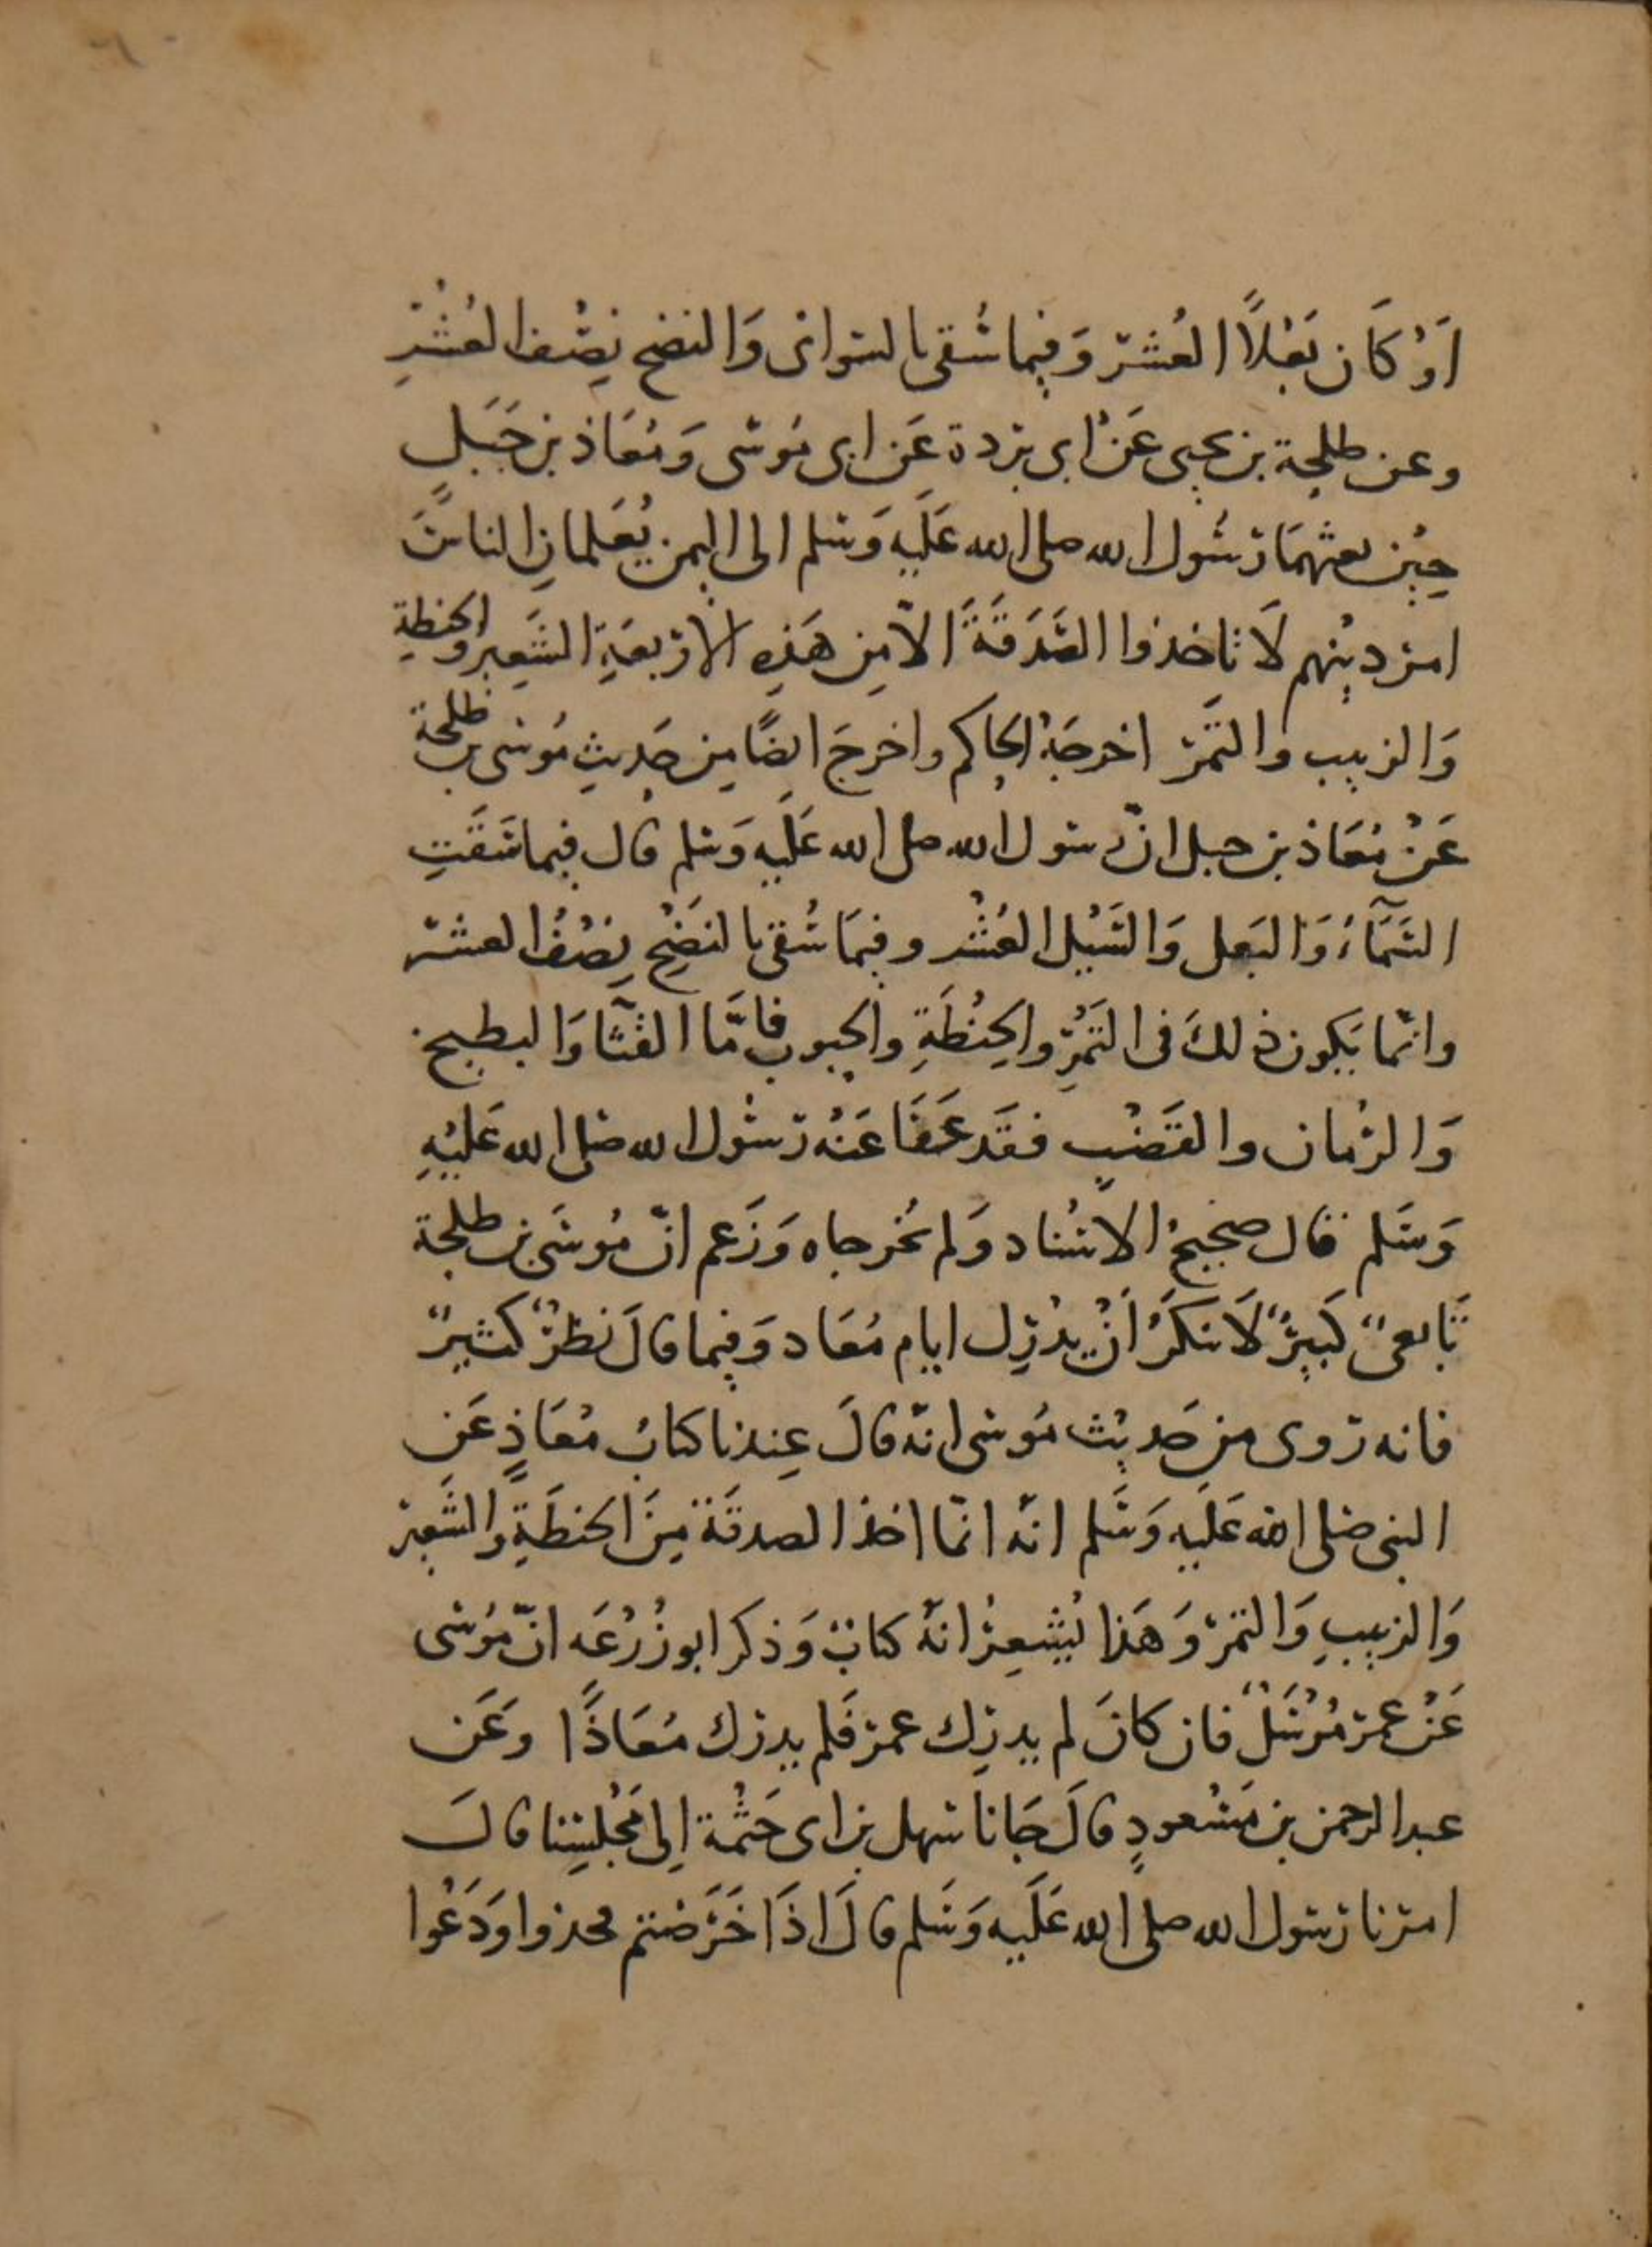 اَوْ كَان بَعْلًا العُشر وَفيما سُقى بالسوانى وَالنضح نِصْف العُشْرِ
وعن طلحة بن يحيى عَنْ ابى بردة عَن ابى مُوسى وَمُعَاذ بن جَبَلٍ
حِيْن بعثهمَا رسُول الله صلى الله عَلَيه وَسلم الى اليمن يُعَلمانِ الناسَ
امر دينهم لَا تاخذوا الصَّدَقَةَ الّا مِن هَذِه الاربعَةِ الشَعِير والحنطةِ
وَالزبيب والتَمر اخرجَهُ الحاكم واخرجَ ايضًا مِن حَديثِ مُوسى بن طلحة
عَنْ مُعَاذ بن جبل انّ رسول الله صلى الله عَلَيه وَسلم قال فيما سَقَتِ
السَّمَآءُ وَالبَعل وَالسَيْل العُشْر وفيمَا سُقى بالنَضْحِ نِصْفُ العشر
وانّما يَكون ذلكَ فى التَمْرِ والحِنْطَةِ والحبوب فامَّا القثآ وَالبطيخ
وَالرُمان والقَضْبِ فقَد عَفَا عَنْه رَسُول الله صلى الله عَليْهِ
وَسَلم قال صحيحُ الاسْناد وَلم يُخرجاه وَزَعم انّ مُوسَى بن طلحة
تَابعىٌ كَبيرٌ لَا ينكَرُ اَنْ يدْرِك ايام مُعَاد وَفيما قالَ نظرٌ كثيرٌ
فانه رَوى من حَديْث مُوسى انهّ قالَ عِندنا كتابُ مُعَاذٍ عَن
النبى صلى الله عَلَيه وَسَلم انهّ انّما اخذ الصدقَة مِنَ الحنطَةِ والشَعِير
وَالزبيبِ وَالتمر وَهَذا يُشعِرُ انهُ كتابٌ وَذكر ابو زُرْعَه انّ مُوسى
عَنْ عمر مُرْسَلٌ فان كانَ لم يدرِك عمر فَلم يدرك مُعَاذًا وعَن
عبدالرحمن بن مَسْعودٍ قالَ جَانا سَهل بن ابى حَثْمة اِلى مَجْلسِنا قالَ
امرنا رَسول الله صلى الله عَلَيه وَسَلم قالَ اذَا خَرَصْتم فخذوا وَدَعُوا